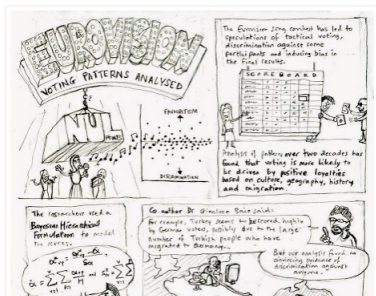 EUROVISION
VOTING PATTERNS ANALYSED
The Eurovision song contest has led to
speculations of tactical voting,
discrimination against some
participants and inducing bias in
the final results.
SCOREBOARD
FAVOURITISM
POINTS
DISCRIMINATION
Analysis of patterns over two decades has
found that voting is more likely to
be driven by positive loyalties
based on culture, geography, history
and migration.
The researchers used a
Bayesian Hierarchical
Formulation to model
the scores.
Co author Dr Gianluca Baio said:
For example, Turkey seem to be scored highly
by German voters, possibly due to the large
number of Turkish people who have
migrated to Germany..
But our analysis found no
convincing evidence of
discrimination against
anyone..